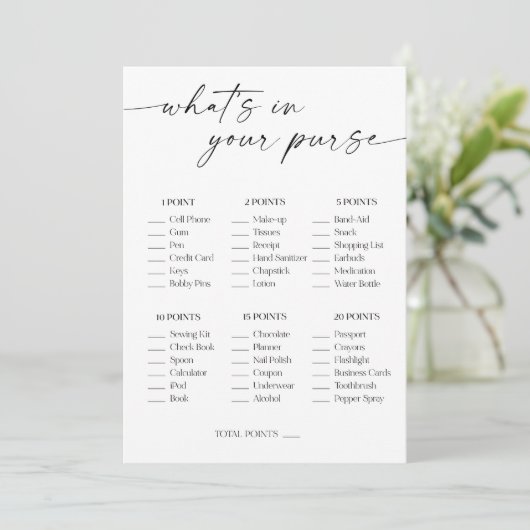 what's in
your purse
1 POINT
___ Cell Phone
___ Gum
___ Pen
___ Credit Card
___ Keys
___ Bobby Pins
2 POINTS
___ Make-up
___ Tissues
___ Receipt
___ Hand Sanitizer
___ Chapstick
___ Lotion
5 POINTS
___ Band-Aid
___ Snack
___ Shopping List
___ Earbuds
___ Medication
___ Water Bottle
10 POINTS
___ Sewing Kit
___ Check Book
___ Spoon
___ Calculator
___ iPod
___ Book
15 POINTS
___ Chocolate
___ Planner
___ Nail Polish
___ Coupon
___ Underwear
___ Alcohol
20 POINTS
___ Passport
___ Crayons
___ Flashlight
___ Business Cards
___ Toothbrush
___ Pepper Spray
TOTAL POINTS ___